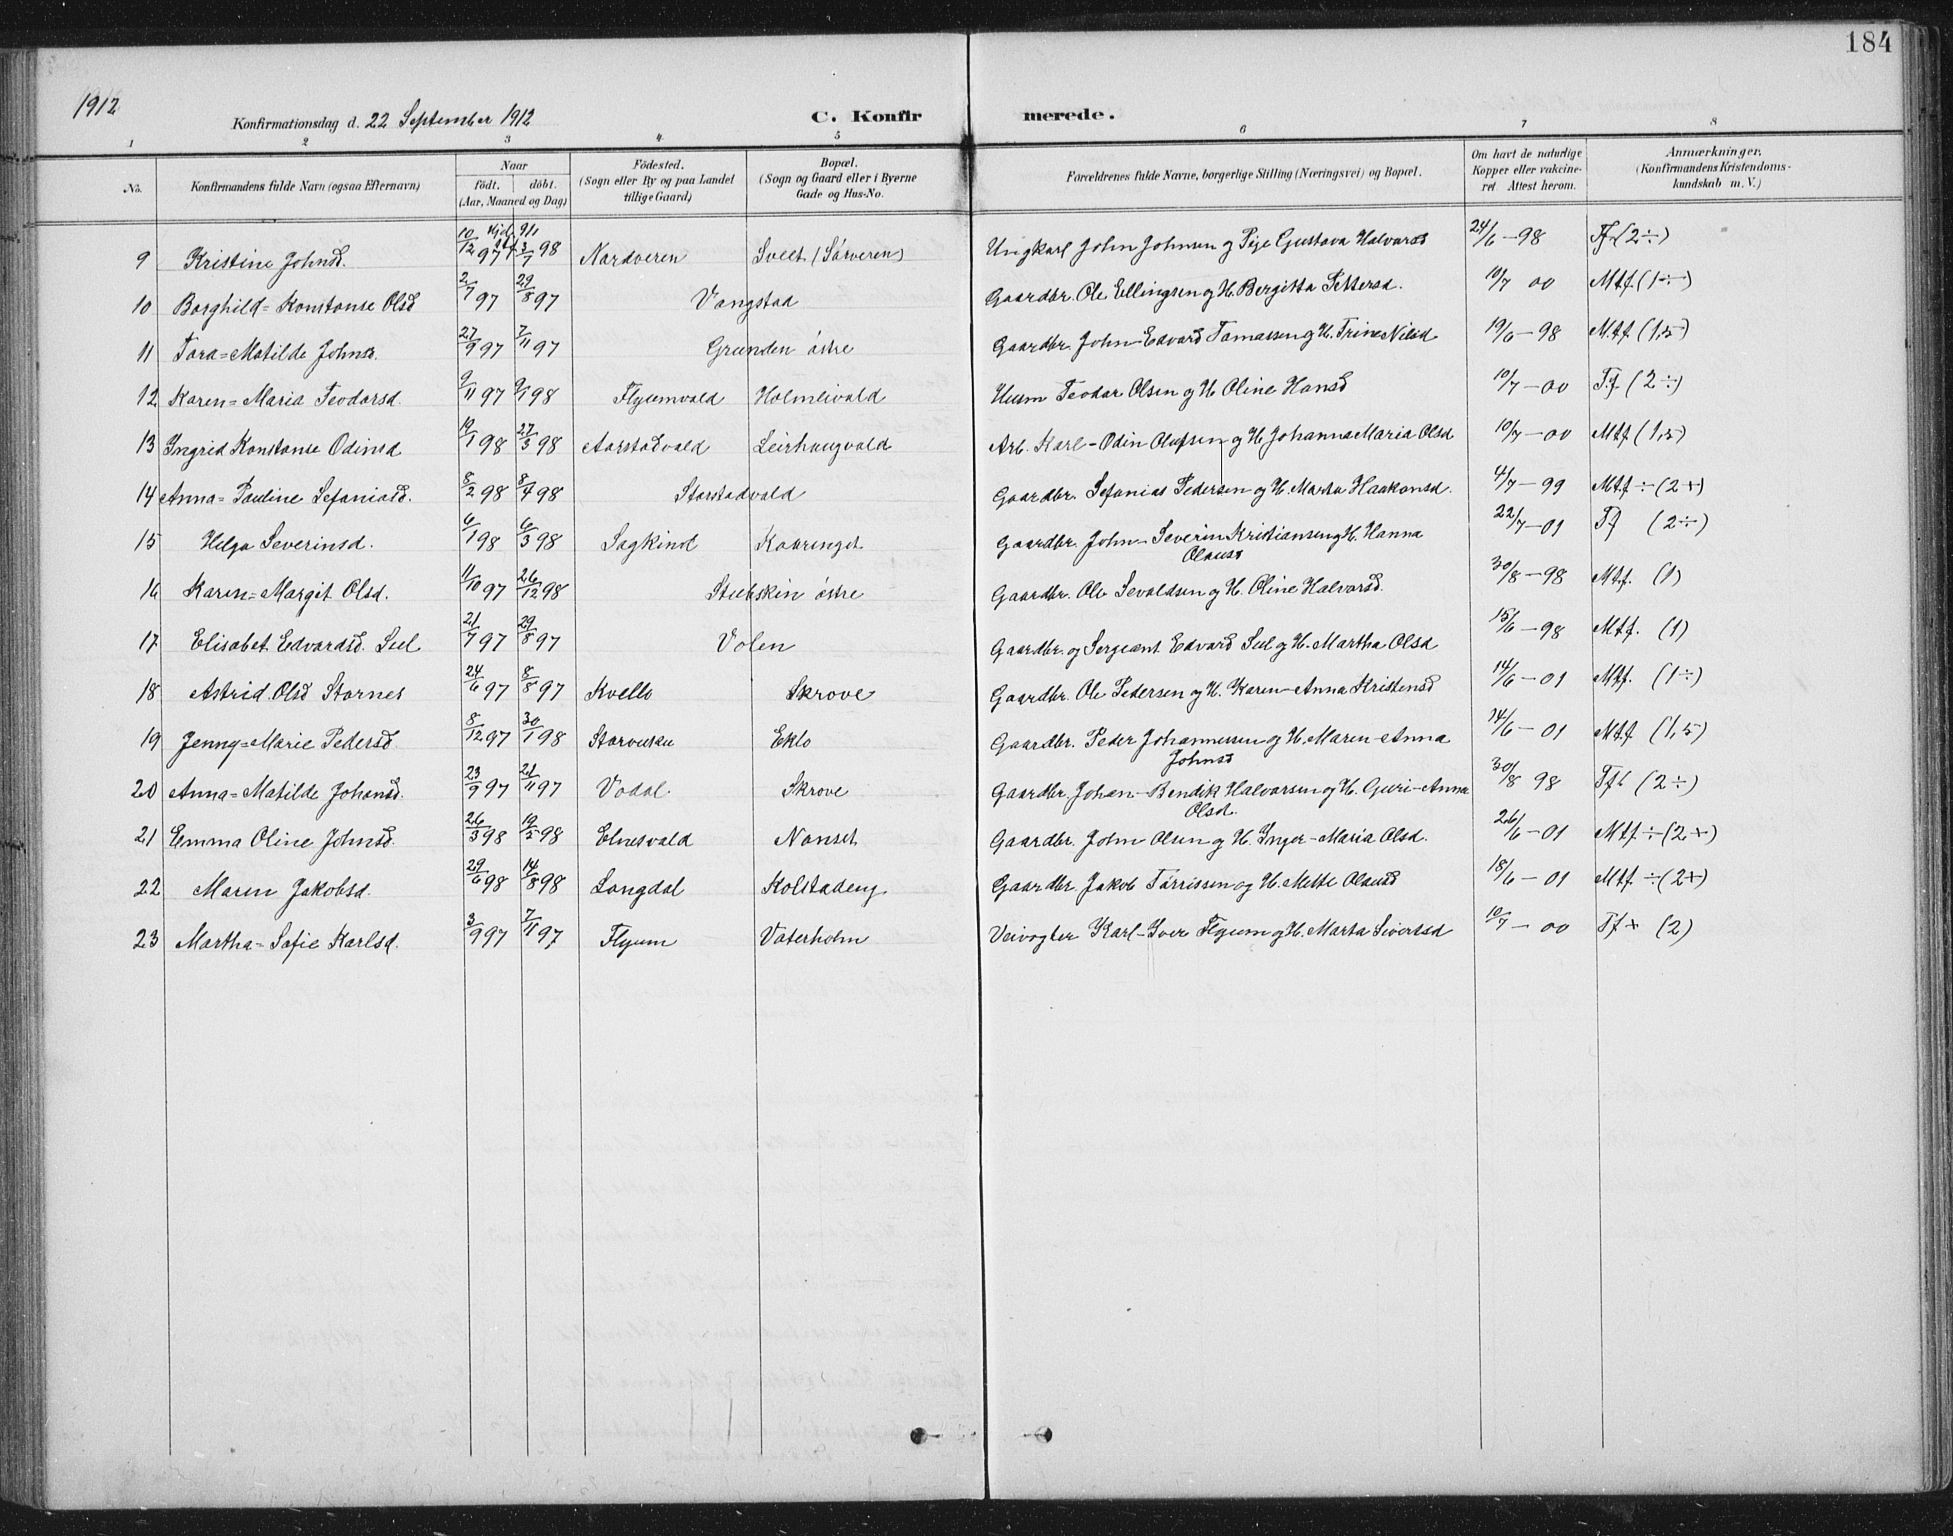 184
1912
Konfirmationsdag d. 22 September 1912 C. Konfirmerede.
1 2 3 4 5 6 7 8
No. Konfirmandens fulde Navn (ogsaa Efternavn) Naar født. døbt. (Aar, Maaned og Dag) Födested. (Sogn eller By og paa Landet tillige Gaard) Bopæl. (Sogn og Gaard eller i Byerne Gade og Hus-No. Forældrenes fulde Navne, borgerlige Stilling (Næringsvei) og Bopæl. Om havt de naturlige Kopper eller vakcineret. Attest herom. Anmærkninger. (Konfirmandens Kristendomskundskab m. V.)
9 Kristine Johnsd. 10/12 97 3/7 98 Nordveren Sveet (Sørveren) Ungkarl John Johnsen og Pige Gustava Halvorsd 24/6 - 98 Tf (2÷)
10 Borghild=Konstanse Olsd 2/7 97 29/8 97 Vongstad Gaardbr. Ole Ellingsen og H. Bergitta Pettersd. 10/7 00 Mtf. (1÷)
11 Tora=Matilde Johnsd. 27/9 97 7/11 97 Grunden østre Gaardbr. John-Edvard Tomassen og H. Trine Nilsd 19/6 - 98 Mtf (1,5)
12 Karen=Maria Teodorsd. 9/11 97 9/1 98 Flyumvald Holmlivald Husm Teodor Olsen og H. Oline Hansd 10/7 - 00 Tf (2÷)
13 Ingrid Konstanse Odinsd 19/1 98 27/3 98 Aarstadvald Leirhaugvald Arb. Karl-Odin Olufsen og H. Johanna Maria Olsd 10/7 - 00 Mtf (1,5)
14 Anna=Pauline Sefaniasd. 8/2 98 8/4 98 Storstadvald Gaardbr. Sefanias Pedersen og H. Marta Haakonsd. 4/7 - 99 Mtf ÷ (2+)
15 Helga Severinsd. 6/1 98 6/3 98 Sagkind Kaaringet Gaardbr. John-Severin Kristiansen og H. Hanna
Olausd 22/7 - 01 Tf (2÷)
16 Karen=Margit Olsd. 11/10 97 26/12 98 Stubskin østre Gaardbr. Ole Sevaldsen og H. Oline Halvorsd. 30/8 - 98 Mtf. (1)
17 Elisabet Edvardsd. Sul 21/7 97 29/8 97 Volen Gaardbr. og Sergeant Edvard Sul og H. Martha Olsd 15/6 - 98 Mtf. (1)
18 Astrid Olsd Stornes 24/6 97 8/8 97 Kvello Skrove Gaardbr. Ole Pedersen og H. Karen-Anna Kristensd 14/6 - 01 Mtf. (1÷)
19 Jenny=Marie Pedersd. 8/12 97 30/1 98 Eklo Gaardbr. Peder Johannessen og H. Maren-Anna
Johnsd 14/6 - 01 Mtf (1,5)
20 Anna=Matilde Johansd. 23/9 97 21/11 97 Vodal. Skrove Gaardbr. Johan-Bendik Halvorsen og H. Guri-Anna
Olsd. 30/8 98 Tf (2÷)
21 Emma Oline Johnsd. 26/3 98 19/5 98 Elnesvald Nonset Gaardbr. John Olsen og H. Inger-Maria Olsd. 26/6 - 01 Mtf ÷ (2+)
22 Maren Jakobsd. 29/6 98 14/8 98 Longdal Kolstadeng Gaardbr Jakob Tørrissen og H. Mette Olausd 18/6 - 01 Mtf ÷ (2+)
23 Martha=Sofie Karlsd. 3/9 97 7/11 97 Flyum Vaterholm Veivogter Karl-Iver Flyum og H. Marta Sivertsd 10/7 - 00 Tf + (2)